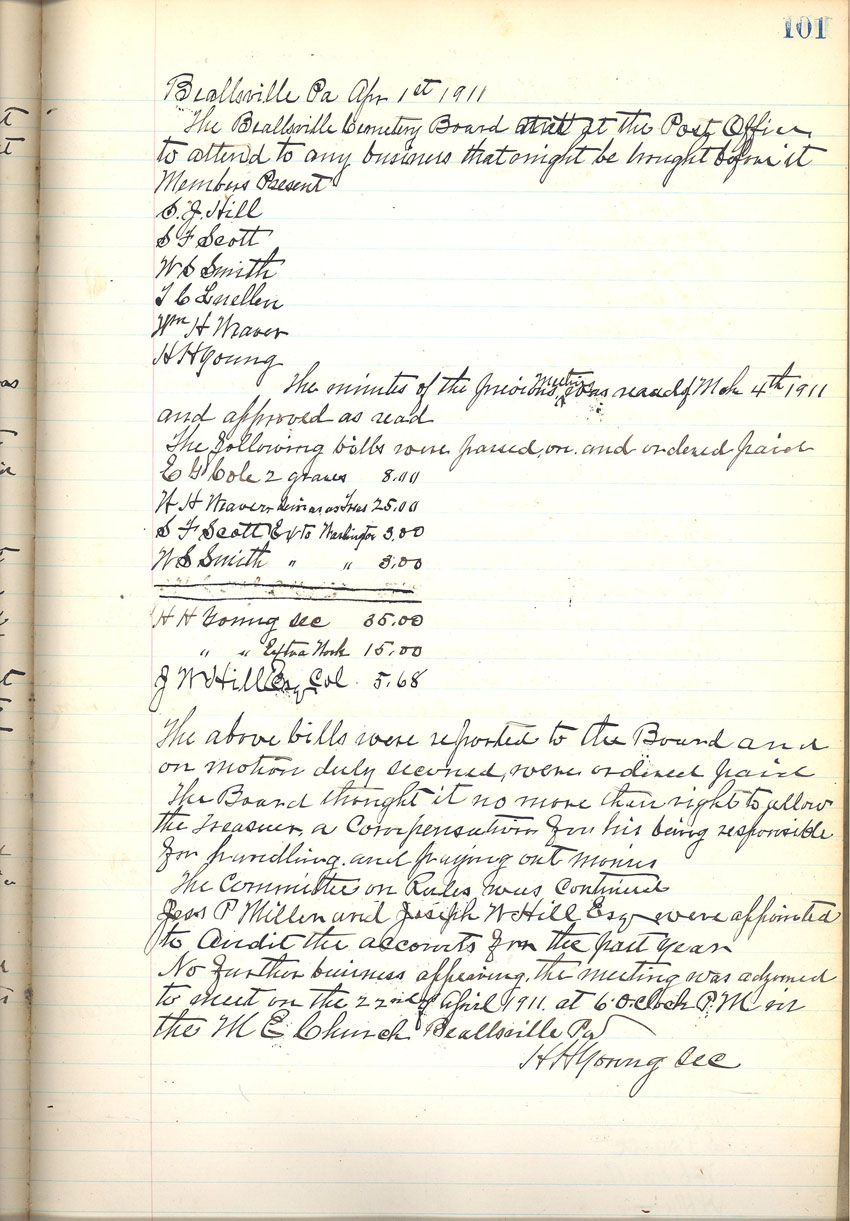 101
Beallsville Pa Apr 1st 1911
The Beallsville Cemetery Board at the Post Office
to attend to any business that might be brought before it
Members Present
S. J. Hill
S F Scott
W S Smith
T C Luellen
Wm H Weaver
H H Young
The minutes of the previous meeting was read of Mch 4th 1911
and approved as read
The following bills were passed on and ordered paid
E G Cole 2 graves 8.00
W H Weaver as Treas 25.00
S F Scott Ex to Washington 3.00
W S Smith " " 3.00
H H Young Sec 35.00
" " Extra Work 15.00
J W Hill Esq Col 5.68
The above bills were reported to the Board and
on motion duly seconed, were ordered paid
The Board thought it no more than right to allow
the Treasurer, a Compensation for his being responsible
for handling and paying out monies
The Committee on Rules was Continued
Jess P Miller and Joseph W Hill Esq were appointed
to Audit the accounts for the past year
No further business appearing, the meeting was adjorned
to meet on the 22nd of April 1911. at 6 O.Clock P.M in
the M E Church Beallsville Pa
H H Young Sec